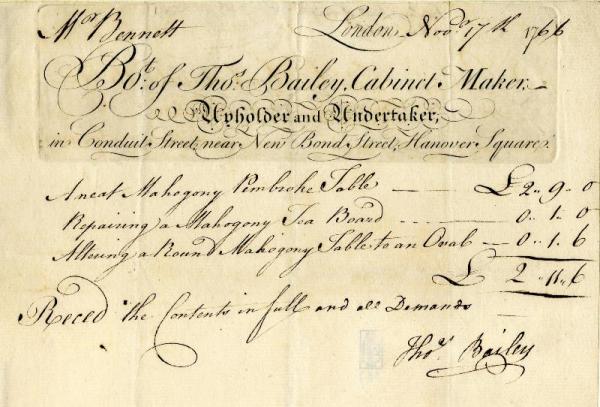 Mr Bennett London, Novr 17th 1766
Bot. of Thos. Bailey, Cabinet Maker,
Upholder and Undertaker,
in Conduit Street, near New Bond Street, Hanover Square.
A neat Mahogony Pembroke Table £2 „ 9 „ 0
Repairing a Mahogony Tea Board 0 „ 1 „ 0
Altering a Round Mahogony Table to an Oval 0 „ 1 „ 6
£ 2 „ 11 „ 6
Reced the Contents in full and all Demands
Thos. Bailey